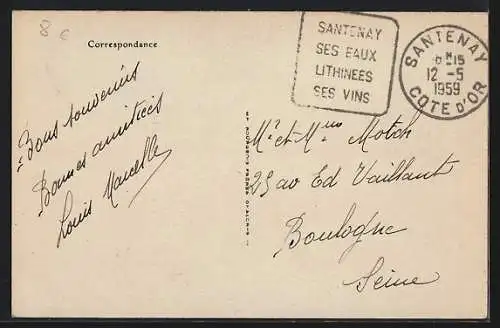 8 €
Correspondance
SANTENAY
SES EAUX
LITHINEES
SES VINS
SANTENAY
12 -5
1959
COTE D'OR
Bons souvenirs
Bonnes amitiés
Louis Marcelle
Mr et Mme Motch
25 av Ed Vaillant
Boulogne
Seine